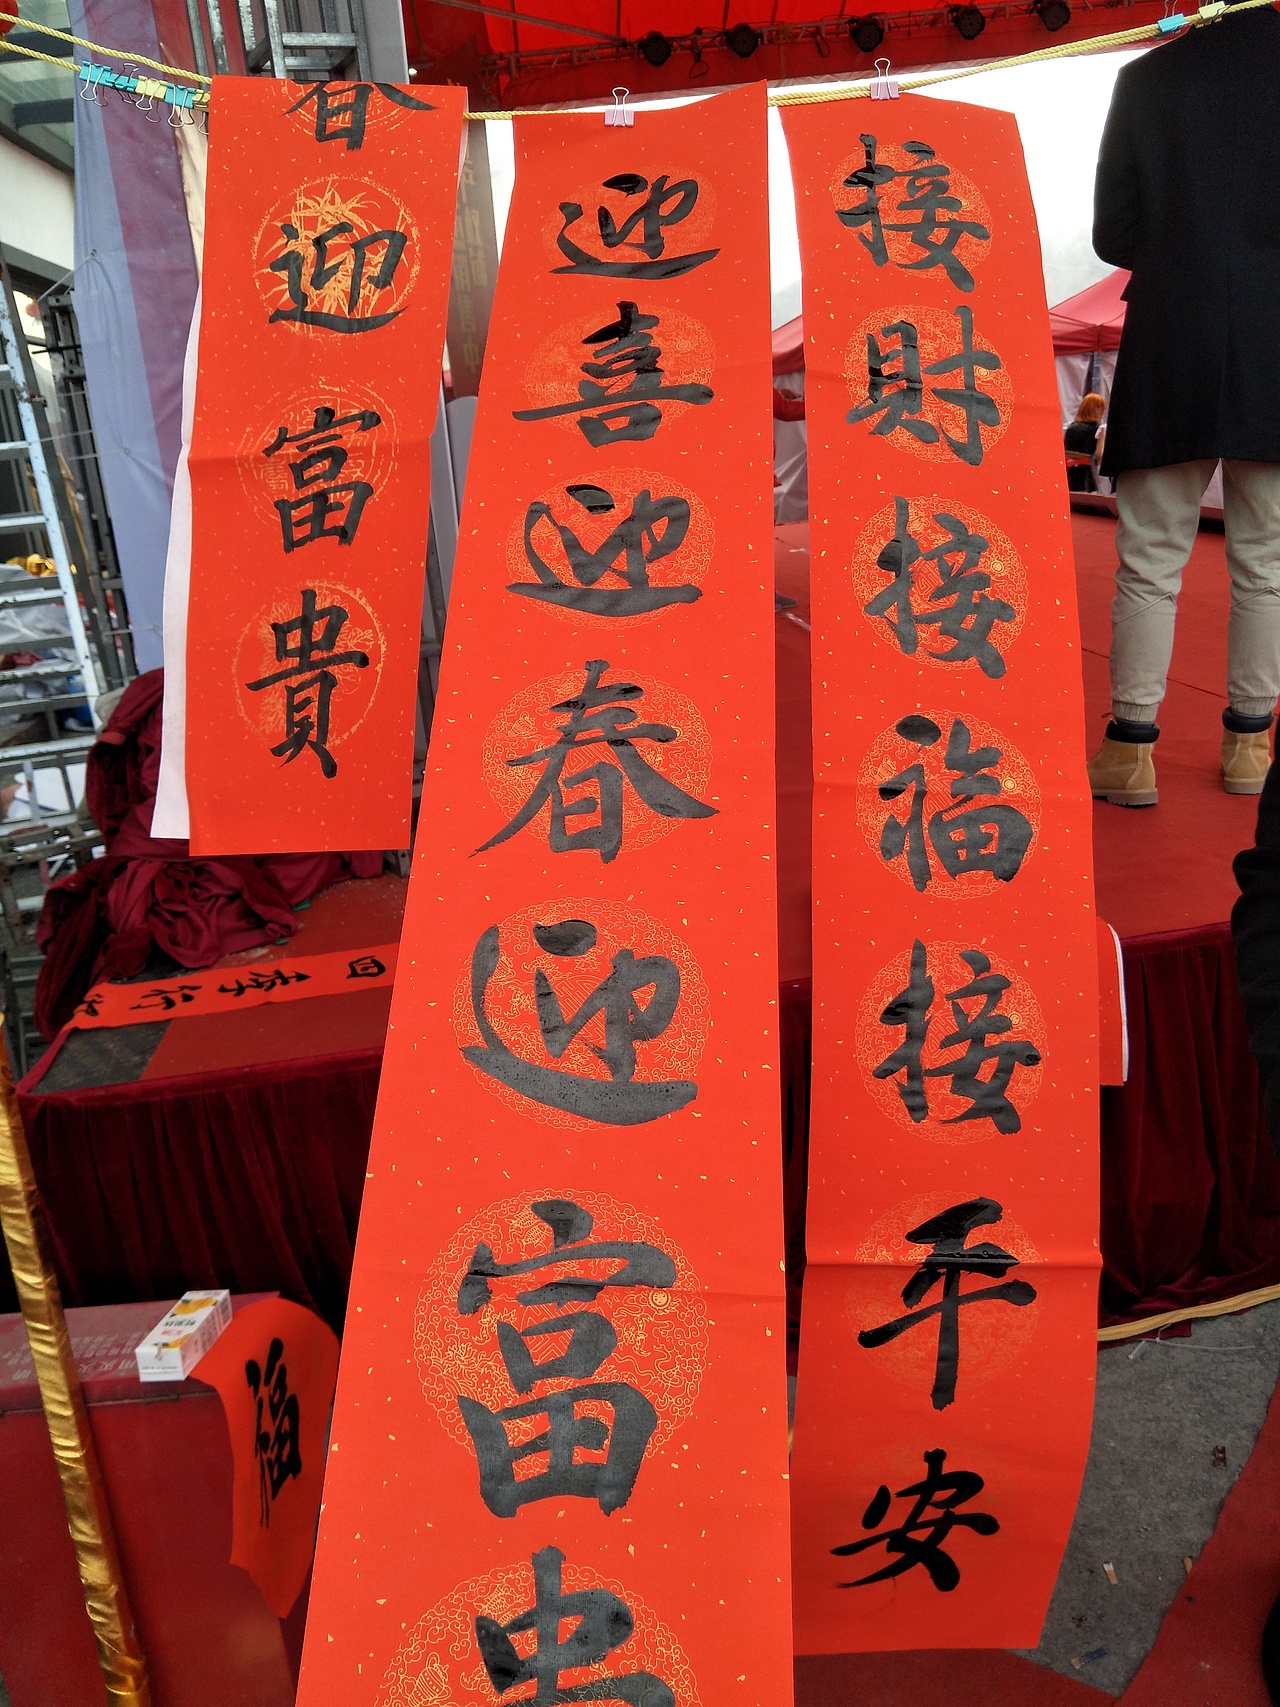 春迎富貴
迎喜迎春迎富貴
接財接福接平安
四季行
福